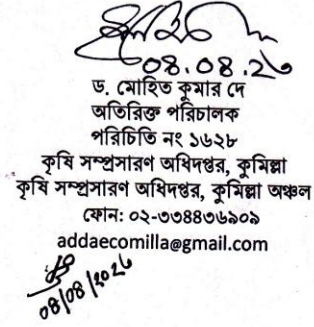 ০৪.০৪.২৬
ড. মোহিত কুমার দে
অতিরিক্ত পরিচালক
পরিচিতি নং ১৬২৮
কৃষি সম্প্রসারণ অধিদপ্তর, কুমিল্লা
কৃষি সম্প্রসারণ অধিদপ্তর, কুমিল্লা অঞ্চল
ফোন: ০২-৩৩৪৪৩৬৯০৯
addaecomilla@gmail.com
০৪/০৪/২০২৬